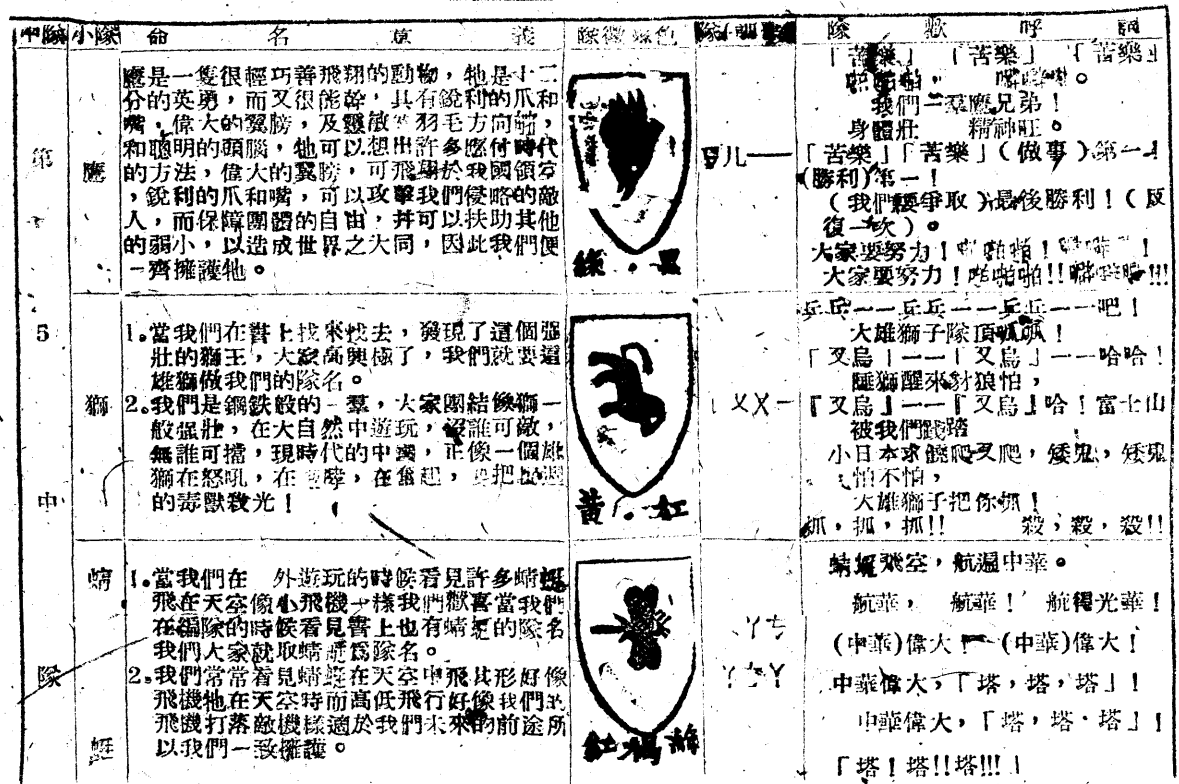 中隊 小隊 命名意義 隊徽隊色 隊歌呼詞
第
5
中
隊
鷹
鷹是一隻很輕巧善飛翔的動物，牠是十二
分的英勇，而又很能幹，具有銳利的爪和
嘴，偉大的翼膀，及靈敏羽毛方向
和聰明的頭腦，牠可以想出許多應付時代
的方法，偉大的翼膀，可飛翔於我國領空
，銳利的爪和嘴，可以攻擊我們侵略的敵
人，而保障團體的自由，并可以扶助其他
的弱小，以造成世界之大同，因此我們便
一齊擁護牠。
綠．黑
「苦樂」「苦樂」「苦樂」
我們一羣鷹兄弟！
身體壯 精神旺。
「苦樂」「苦樂」（做事）第一！
(勝利)第一！
（我們要爭取）最後勝利！（反
復一次）。
大家要努力！啪啪！
大家要努力！啪啪!!
獅
1。當我們在書上找來找去，發現了這個强
壯的獅王，大家高興極了，我們就要這
雄獅做我們的隊名。
2。我們是鋼鉄般的一羣，大家團結像獅一
般强壯，在大自然中遊玩，誰可敵，
無誰可擋，現時代的中國，正像一個雄
獅在怒吼，在，在奮起，把
的毒獸殺光！
黃．紅
乒乓——乒乓——乒乓——吧！
大雄獅子隊頂呱呱！
「叉烏」——「叉烏」——哈哈！
睡獅醒來豺狼怕，
「叉烏」——「叉烏」哈！富士山
被我們踐踏
小日本求饒爬叉爬，矮鬼，矮鬼
怕不怕，
大雄獅子把你抓！
抓，抓，抓!! 殺，殺，殺!!
蜻蜓
1。當我們在 外遊玩的時候看見許多蜻蜓
飛在天空像小飛機一樣我們歡喜當我們
在編隊的時候看見書上也有蜻蜓的隊名
我們大家就取蜻蜓爲隊名。
2。我們常常看見蜻蜓在天空中飛其形好像
飛機牠在天空時而高低飛行好像我們的
飛機打落敵機樣適於我們未來的前途所
以我們一致擁護。
蜻蜓飛空，航遍中華。
航華， 航華！ 航程光華！
(中華)偉大！—(中華)偉大！
中華偉大，「塔，塔，塔」！
中華偉大，「塔，塔．塔」！
「塔！塔!!塔!!!」